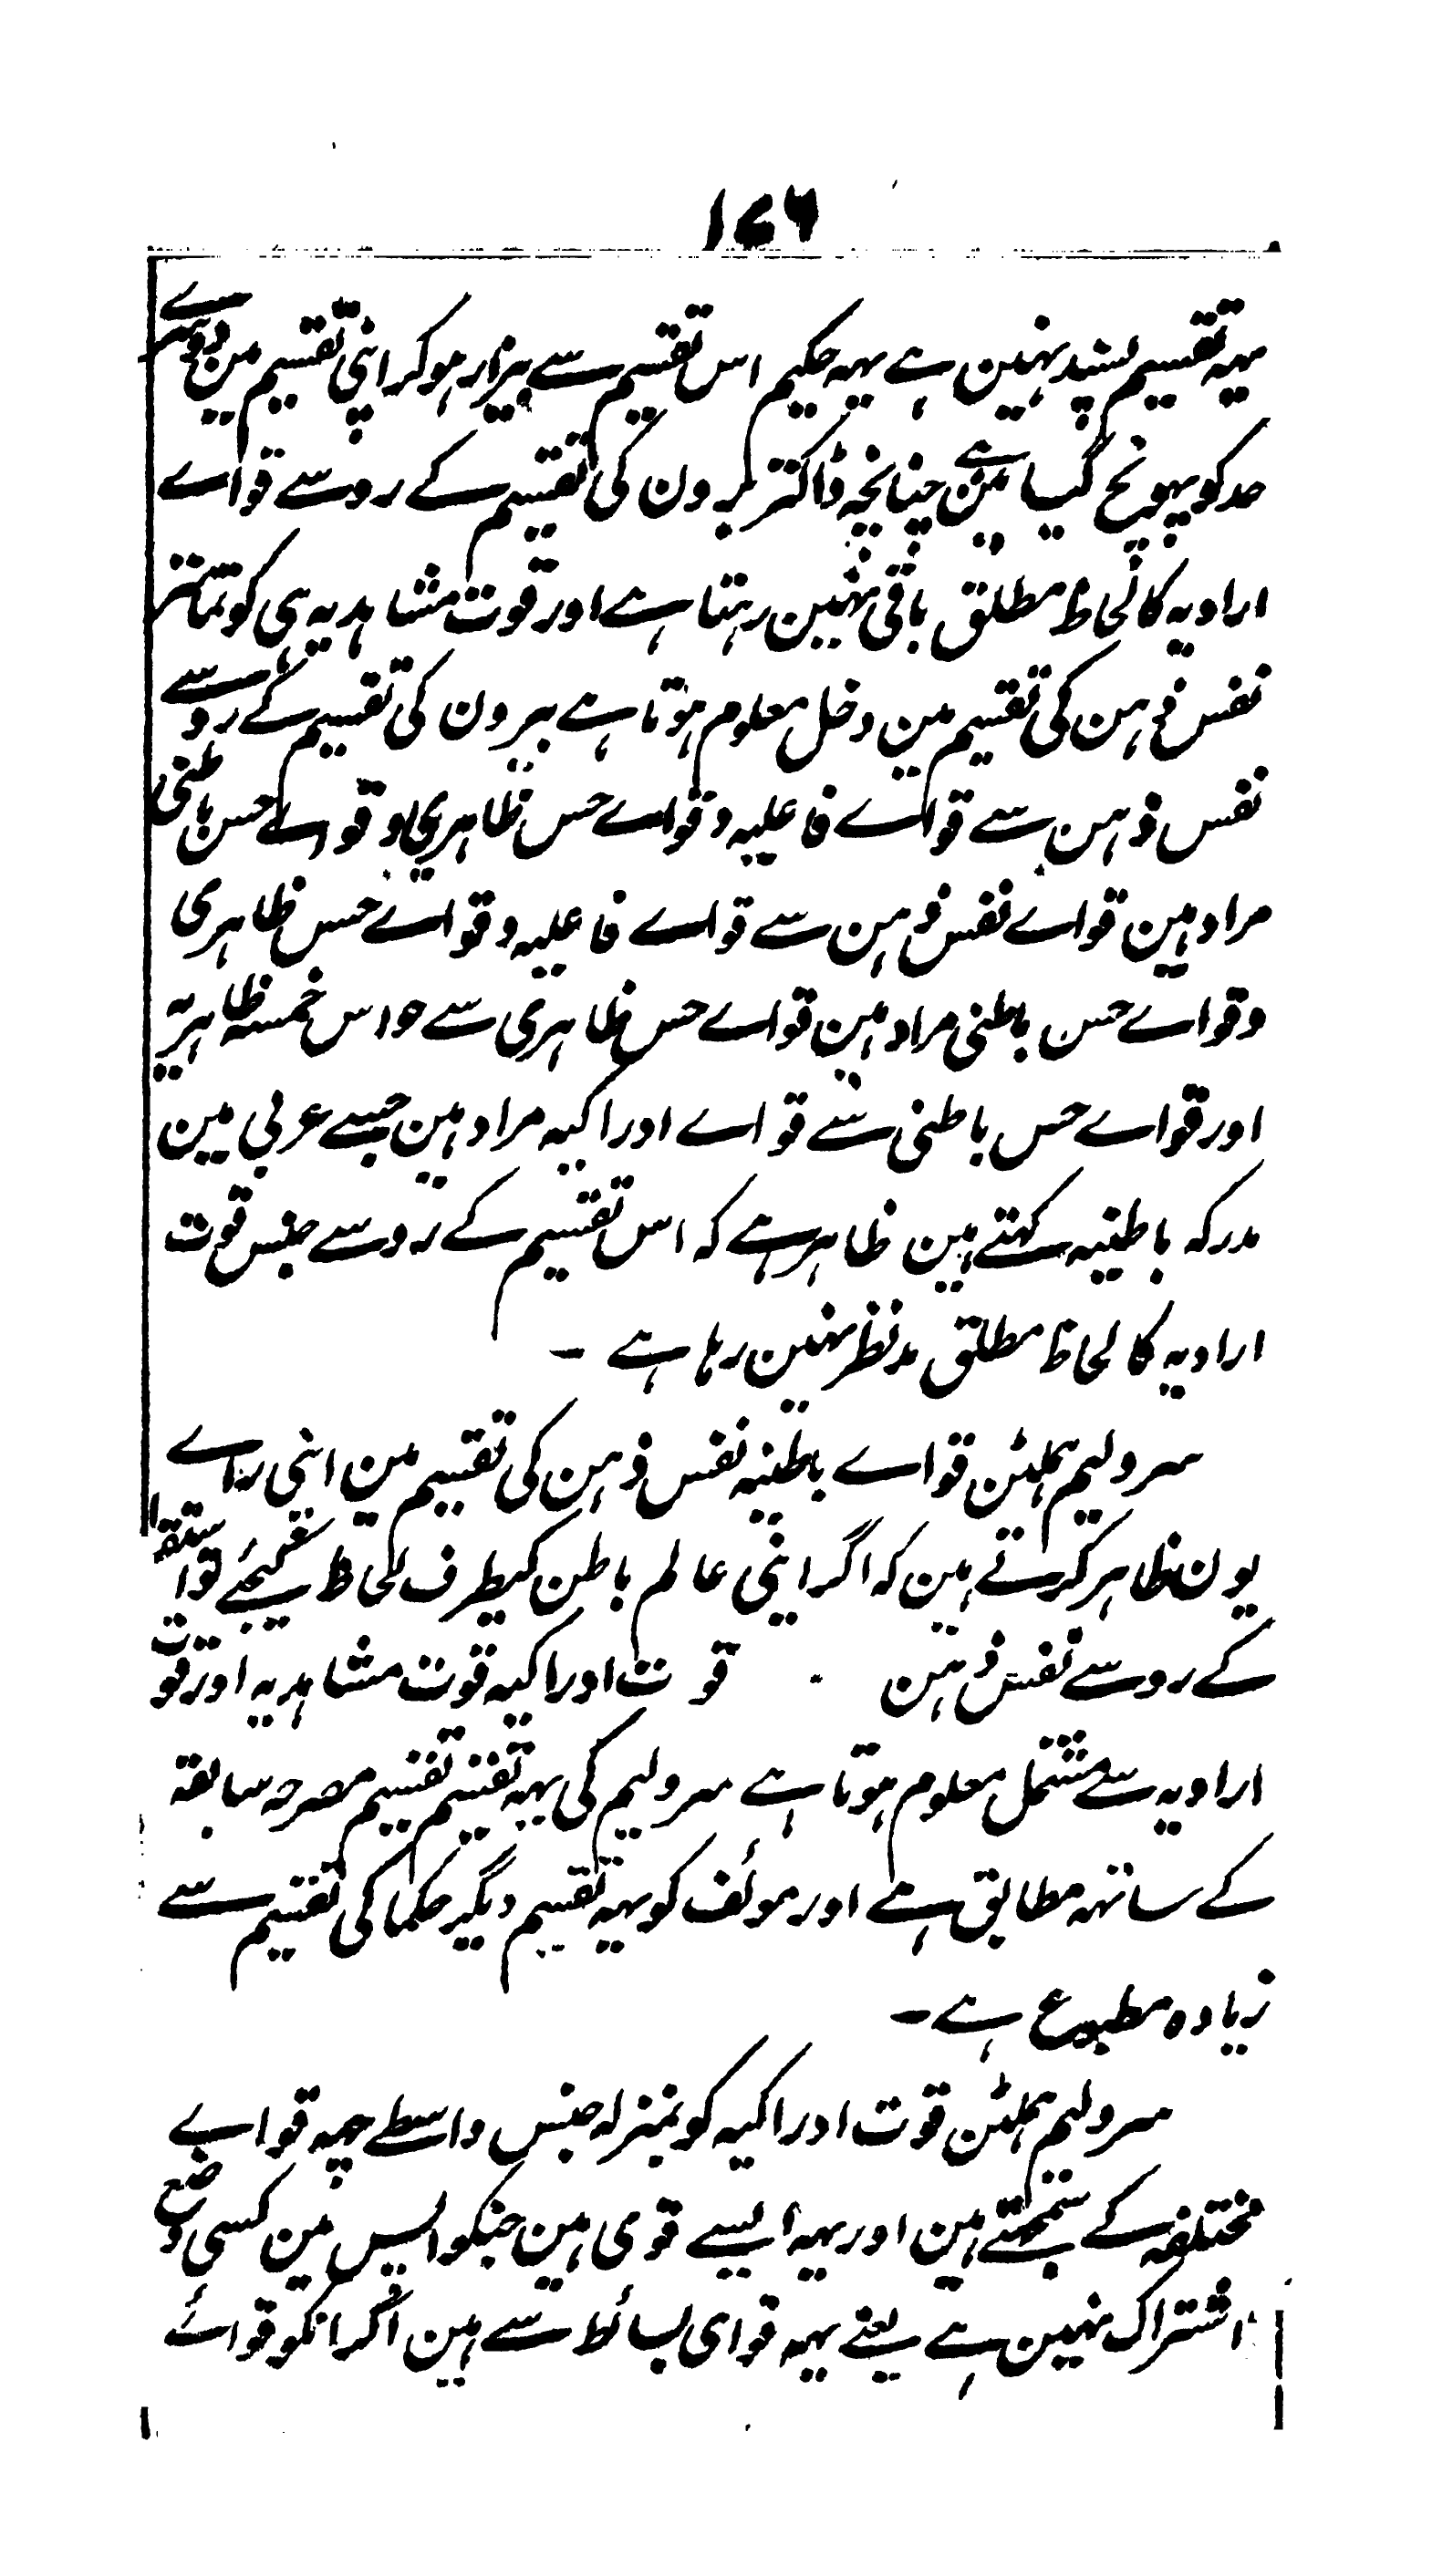 ۱۷۶
یہہ تقسیم پسند نہین ہے یہہ حکیم اس تقسیم سے بیزار ہوکر اپنی تقسیم مین دوسرے
حد کو پہونچ گیا ہے چنانچہ ڈاکتر برون کی تقسیم کے رو سے قواے
ارادیہ کا لحاظ مطلق باقی نہین رہتا ہے اور قوت مشاہدیہ ہی کو تمامتر
نفس ذہن کی تقسیم مین دخل معلوم ہوتا ہے برون کی تقسیم کے رو سے
نفس ذہن سے قواے فاعلیہ و قواے حس ظاہری و قواے حس باطنی
مراد ہین قواے نفس ذہن سے قواے فاعلیہ و قواے حس ظاہری
و قواے حس باطنی مراد ہین قواے حس ظاہری سے حواس خمسہ ظاہریہ
اور قواے حس باطنی سے قواے ادراکیہ مراد ہین جسے عربی مین
مدرکہ باطنیہ کہتے ہین ظاہر ہے کہ اس تقسیم کے رو سے جنس قوت
ارادیہ کا لحاظ مطلق مدنظر نہین رہا ہے ۔
سر ولیم ہملٹن قواے باطنیہ نفس ذہن کی تقسیم مین اپنی راے
یون ظاہر کرتے ہین کہ اگر اپنی عالم باطن کیطرف لحاظ کیجئے تو استقرا
کے رو سے نفس ذہن قوت ادراکیہ قوت مشاہدیہ اور قوت
ارادیہ سے مشتمل معلوم ہوتا ہے سر ولیم کی یہہ تقسیم تقسیم مصرحہ سابقہ
کے ساتہہ مطابق ہے اور مولف کو یہہ تقسیم دیگر حکما کی تقسیم سے
زیادہ مطبوع ہے ۔
سر ولیم ہملٹن قوت ادراکیہ کو بمنزلہ جنس واسطے چہہ قواے
مختلفہ کے سمجھتے ہین اور یہہ ایسے قوی ہین جنکو اپس مین کسی وضع
اشتراک نہین ہے یعنے یہہ قوای بسائط سے ہین اگر انکو قوائے